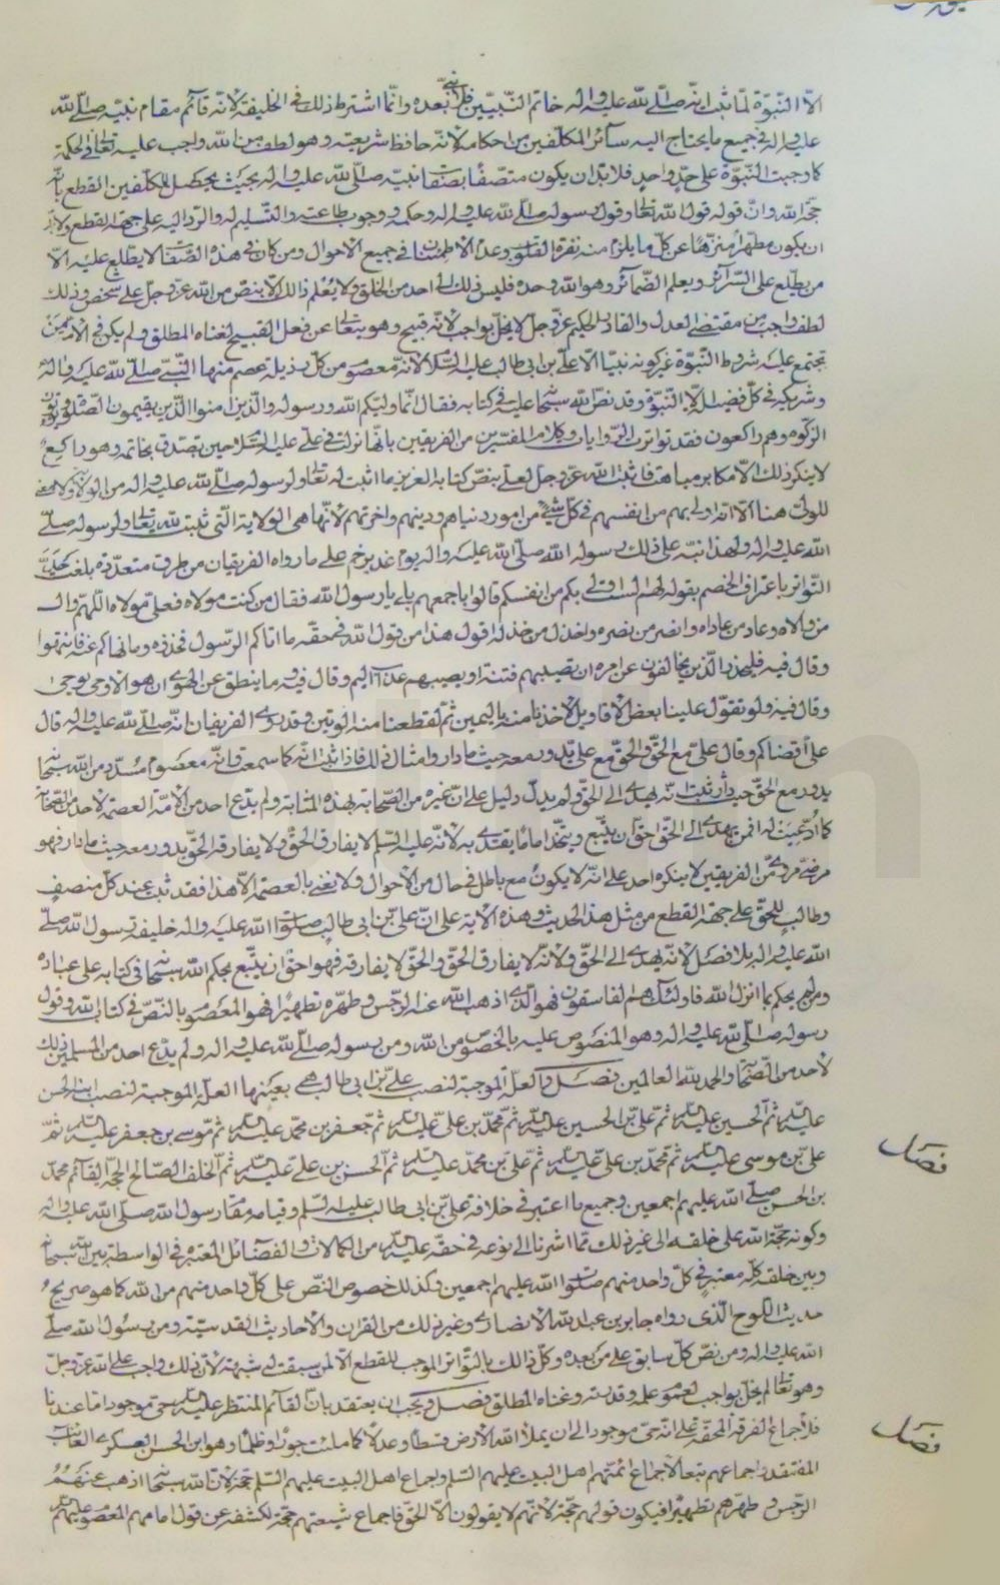 الا النبوة لما ثبت انه صلى الله عليه واله خاتم النبيين فلا نبي بعده وانما اشترط ذلك في الخليفة لانه قائم مقام نبيه صلى الله
عليه واله في جميع ما يحتاج اليه سائر المكلفين من احكامه لانه حافظ شريعته وهو لطف من الله واجب عليه تعالى في الحكمة
كما وجبت النبوة على حد واحد فلا بد ان يكون متصفا بصفات نبيه صلى الله عليه واله بحيث يحصل للمكلفين القطع بانه
حجة الله وان قوله قول الله تعالى وقول رسوله صلى الله عليه واله وحكمه ووجوب طاعته والتسليم له والرد اليه على جهة القطع ولا بد
ان يكون مطهرا منزها عن كل ما يلزم منه نفرة القلوب وعدم الاطمئنان في جميع الاحوال ومن كان في هذه الصفات لا يطلع عليه الا
من يطلع على السرائر ويعلم الضمائر وهو الله وحده فليس ذلك الى احد من الخلق ولا يعلم ذلك الا بنص من الله عز وجل على شخص وذلك
لطف واجب من مقتضى العدل والقادر الحكيم عز وجل لا يخل بواجب لانه قبيح وهو يتعالى عن فعل القبيح لغناه المطلق ولم يكن في الامة من
تجتمع عليه شروط النبوة غير كونه نبيا الا علي بن ابي طالب عليه السلام لانه معصوم من كل رذيلة عصم منها النبي صلى الله عليه واله
وشريكه في كل فضيلة الا النبوة وقد نص الله سبحانه عليه في كتابه فقال انما وليكم الله ورسوله والذين امنوا الذين يقيمون الصلوة ويؤتون
الزكوة وهم راكعون فقد تواترت الروايات وكلام المفسرين من الفريقين بانها نزلت في علي عليه السلام حين تصدق بخاتمه وهو راكع
لا ينكر ذلك الا مكابر مباهت فاثبت الله عز وجل لعلي بنص كتابه العزيز ما اثبت له تعالى ولرسوله صلى الله عليه واله من الولاية ولا معنى
للولي هنا الا انه اولى بهم من انفسهم في كل شيء من امور دنياهم ودينهم واخرتهم لانها هي الولاية التي ثبتت لله تعالى ولرسوله صلى
الله عليه واله ولهذا نبه على ذلك رسوله الله صلى الله عليه واله يوم غدير خم على ما رواه الفريقان من طرق متعددة بلغت حد
التواتر باعتراف الخصم بقوله لهم الست اولى بكم من انفسكم قالوا باجمعهم بلى يا رسول الله فقال من كنت مولاه فعلي مولاه اللهم وال
من والاه وعاد من عاداه وانصر من نصره واخذل من خذله اقول هذا من قول الله في حقه ما اتاكم الرسول فخذوه وما نهاكم عنه فانتهوا
وقال فيه فليحذر الذين يخالفون عن امره ان تصيبهم فتنة او يصيبهم عذاب اليم وقال فيه وما ينطق عن الهوى ان هو الا وحي يوحى
وقال فيه ولو تقول علينا بعض الاقاويل لاخذنا منه باليمين ثم لقطعنا منه الوتين وقد روى الفريقان انه صلى الله عليه واله قال
علي اقضاكم وقال علي مع الحق والحق مع علي يدور معه حيث ما دار وامثال ذلك فاذا ثبت انه كما سمعت وانه معصوم مسدد من الله سبحانه
يدور مع الحق حيث دار ثبت انه يهدي الى الحق ولم يدل دليل على ان غيره من الصحابة بهذه المثابة ولم يدع احد من الامة العصمة لاحد من الصحابة
كما ادعيت له افمن يهدي الى الحق احق ان يتبع ويتخذ اماما يقتدى به لانه عليه السلام لا يفارق الحق ولا يفارقه الحق يدور معه حيث ما دار فهو
من الفريقين لا ينكره احد على انه لا يكون مع باطل في حال من الاحوال ولا نعني بالعصمة الا هذا فقد ثبت عند كل منصف
وطالب للحق على جهة القطع من مثل هذا الحديث وهذه الاية على ان علي بن ابي طالب صلوات الله عليه واله خليفة رسول الله صلى
الله عليه واله بلا فصل لانه يهدي الى الحق ولانه لا يفارق الحق والحق لا يفارقه فهو احق ان يتبع بحكم الله سبحانه في كتابه على عباده
ومن لم يحكم بما انزل الله فاولئك هم الفاسقون فهو الذي اذهب الله عنه الرجس وطهره تطهيرا فهو المعصوم بالنص في كتاب الله وقول
رسوله صلى الله عليه واله وهو المنصوص عليه بالخصوص من الله ومن رسوله صلى الله عليه واله ولم يدع احد من المسلمين ذلك
لاحد من الصحابة والحمد لله رب العالمين فصل والعلة الموجبة لنصب علي بن ابي طالب هي بعينها العلة الموجبة لنصب ابنه الحسن
عليه السلام ثم الحسين عليه السلام ثم علي بن الحسين عليه السلام ثم محمد بن علي عليه السلام ثم جعفر بن محمد عليه السلام ثم موسى بن جعفر عليه السلام ثم
علي بن موسى عليه السلام ثم محمد بن علي عليه السلام ثم علي بن محمد عليه السلام ثم الحسن بن علي عليه السلام ثم الخلف الصالح الحجة القائم محمد
فصل
بن الحسن صلى الله عليهم اجمعين وجميع ما اعتبر في خلافة علي بن ابي طالب عليه السلام وقيامه مقام رسول الله صلى الله عليه واله
وكونه حجة الله على خلقه الى غير ذلك مما اشرنا الى نوعه في حقه عليه السلام من الكمالات والفضائل المعتبرة في الواسطة بين الله سبحانه
وبين خلقه كله معتبر في كل واحد منهم صلوات الله عليهم اجمعين وكذلك خصوص النص على كل واحد منهم من الله كما هو صريح
حديث اللوح الذي رواه جابر بن عبد الله الانصاري وغير ذلك من القران والاحاديث القدسية ومن رسول الله صلى
الله عليه واله ومن نص كل سابق على من بعده وكل ذلك بالتواتر الموجب للقطع الا لمن سبقت له شبهة لان ذلك واجب على الله عز وجل
وهو تعالى لم يخل بواجب لعموم علمه وقدرته وغناه المطلق فصل ويجب ان يعتقد بان القائم المنتظر عليه السلام حي موجود اما عندنا
فلاجماع الفرقة المحقة على انه حي موجود الى ان يملأ الله الارض قسطا وعدلا كما ملئت جورا وظلما وهو ابن الحسن العسكري الغائب
فصل
المفتقد واجماعهم تبعا لاجماع ائمتهم اهل البيت عليهم السلم واجماع اهل البيت عليهم السلم حجة لان الله سبحانه اذهب عنهم
الرجس وطهرهم تطهيرا فيكون قولهم حجة لانهم لا يقولون الا الحق فاجماع شيعتهم حجة لكشفه عن قول امامهم المعصوم عليهم السلام